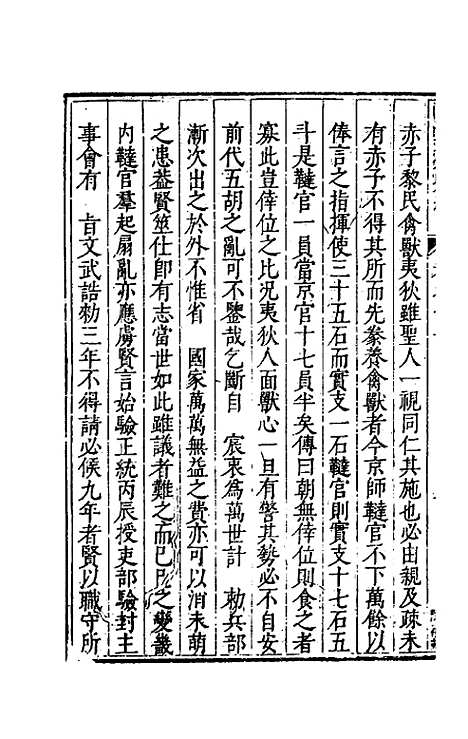 赤子黎民禽獸夷狄雖聖人一視同仁其施也必由親及疎未
有赤子不得其所而先豢養禽獸者今京師韃官不下萬餘以
俸言之指揮使三十五石而實支一石韃官則實支十七石五
斗是韃官一員當京官十七員半矣傳曰朝無倖位則食之者
寡此豈倖位之比況夷狄人面獸心一旦有警其勢必不自安
前代五胡之亂可不鑒哉乞斷自　宸衷為萬世計　勑兵部
漸次出之於外不惟省　國家萬萬無益之費亦可以消未萌
之患葢賢筮仕卽有志當世如此雖議者難之而己巳之變畿
內韃官羣起扇亂亦應虜賢言始驗正統丙辰授吏部驗封主
事會有　旨文武誥勑三年不得請必候九年者賢以職守所